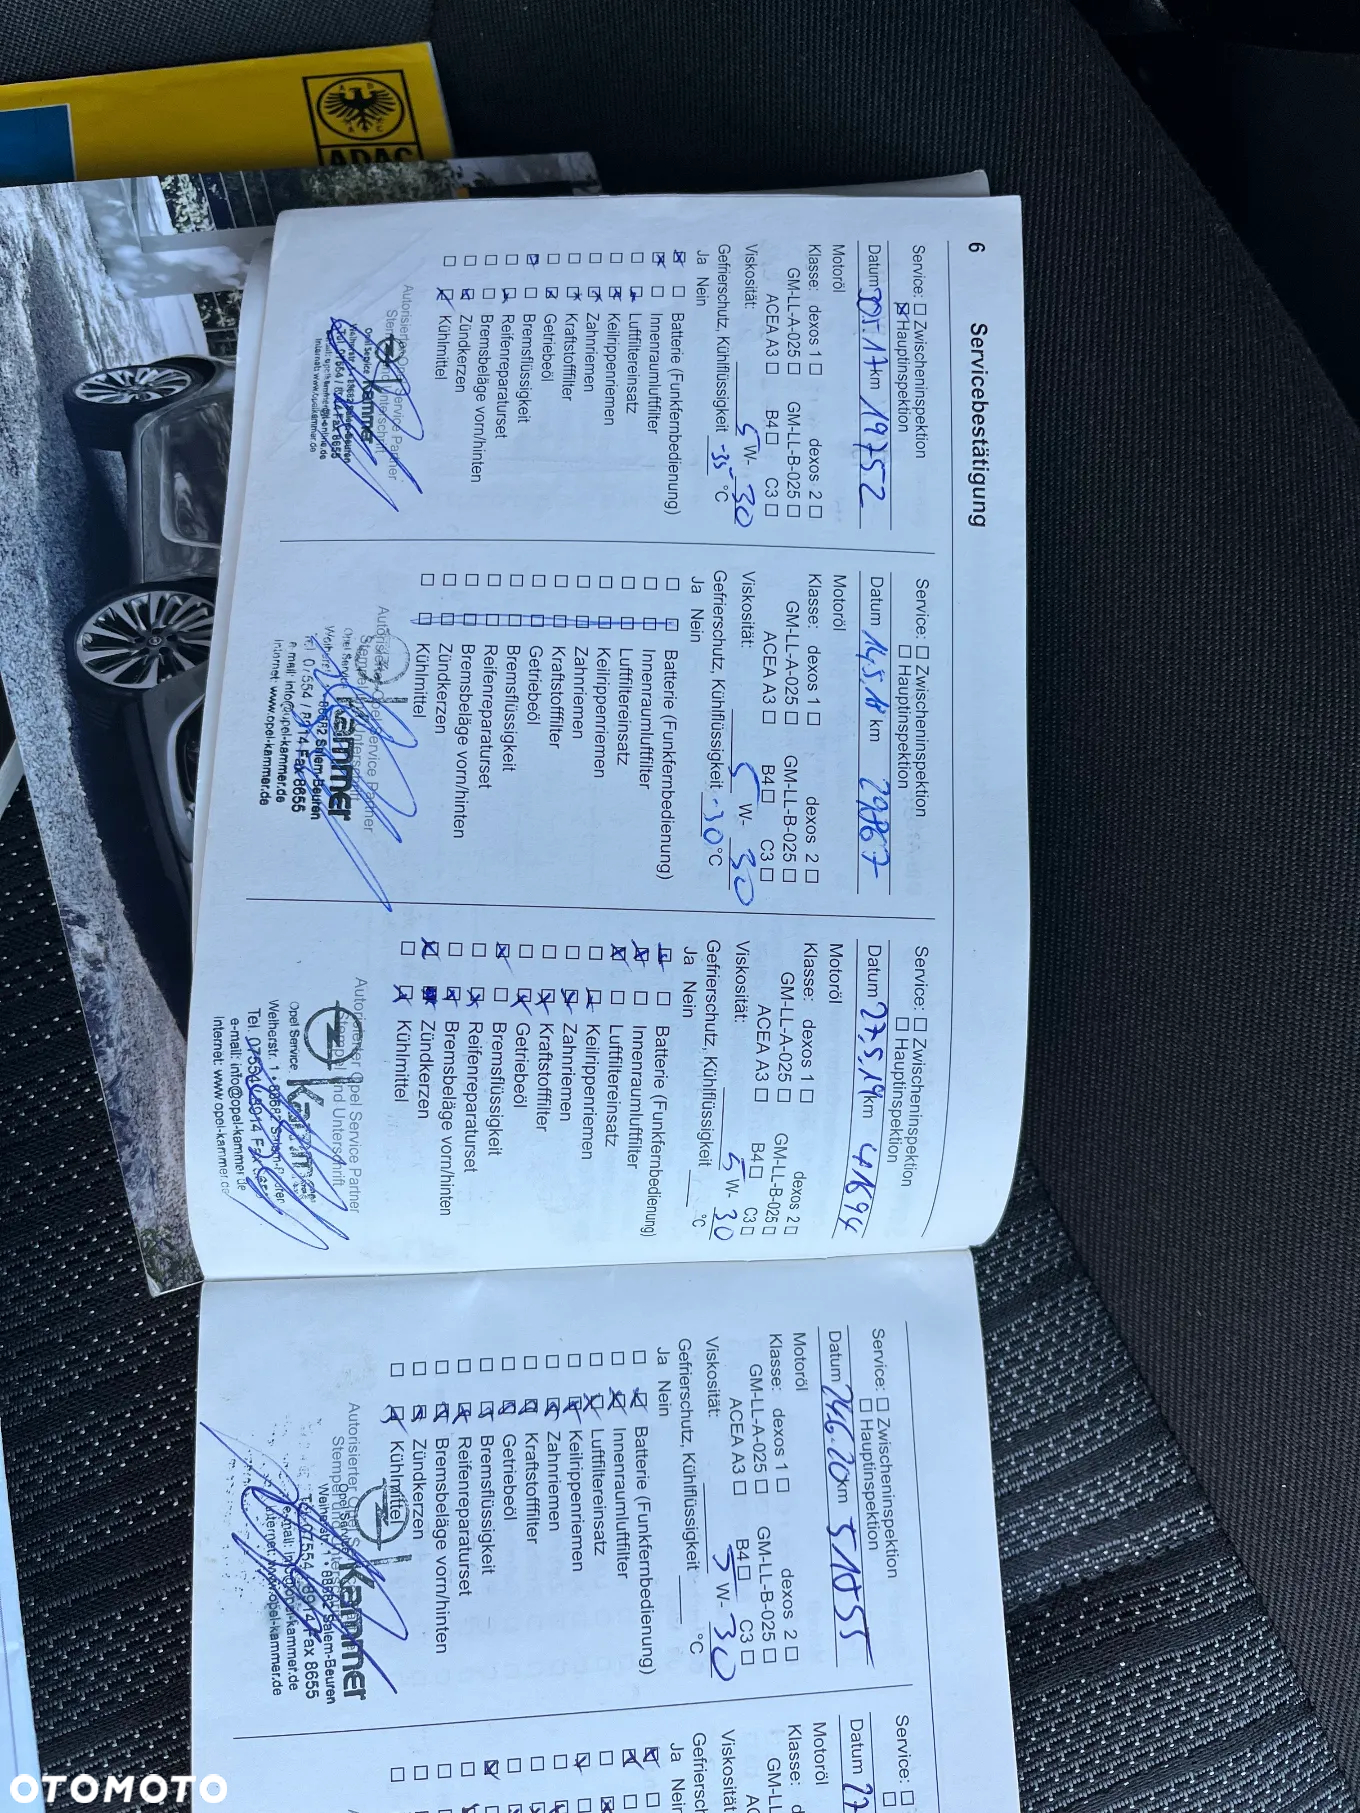 ADAC
6 Servicebestätigung
Service: Zwischeninspektion
Hauptinspektion
Datum 30.5.17 km 19752
Motoröl
Klasse: dexos 1 dexos 2
GM-LL-A-025 GM-LL-B-025
ACEA A3 B4 C3
Viskosität: 5 W- 30
Gefrierschutz, Kühlflüssigkeit -35 °C
Ja Nein
Batterie (Funkfernbedienung)
Innenraumluftfilter
Luftfiltereinsatz
Keilrippenriemen
Zahnriemen
Kraftstofffilter
Getriebeöl
Bremsflüssigkeit
Reifenreparaturset
Bremsbeläge vorn/hinten
Zündkerzen
Kühlmittel
Autorisierter Opel Service Partner
Stempel und Unterschrift
Opel Service Kammer
Internet: www.opel-kammer.de
Service: Zwischeninspektion
Hauptinspektion
Datum 14.5.18 km 29867
Motoröl
Klasse: dexos 1 dexos 2
GM-LL-A-025 GM-LL-B-025
ACEA A3 B4 C3
Viskosität: 5 W- 30
Gefrierschutz, Kühlflüssigkeit -30 °C
Ja Nein
Batterie (Funkfernbedienung)
Innenraumluftfilter
Luftfiltereinsatz
Keilrippenriemen
Zahnriemen
Kraftstofffilter
Getriebeöl
Bremsflüssigkeit
Reifenreparaturset
Bremsbeläge vorn/hinten
Zündkerzen
Kühlmittel
Autorisierter Opel Service Partner
Stempel und Unterschrift
Opel Service Kammer
Weiherstr. 1 • 88682 Salem-Beuren
Tel. 07554 / 8914 Fax 8655
e-mail: info@opel-kammer.de
Internet: www.opel-kammer.de
Service: Zwischeninspektion
Hauptinspektion
Datum 27.5.19 km 41694
Motoröl
Klasse: dexos 1 dexos 2
GM-LL-A-025 GM-LL-B-025
ACEA A3 B4 C3
Viskosität: 5 W- 30
Gefrierschutz, Kühlflüssigkeit °C
Ja Nein
Batterie (Funkfernbedienung)
Innenraumluftfilter
Luftfiltereinsatz
Keilrippenriemen
Zahnriemen
Kraftstofffilter
Getriebeöl
Bremsflüssigkeit
Reifenreparaturset
Bremsbeläge vorn/hinten
Zündkerzen
Kühlmittel
Autorisierter Opel Service Partner
Stempel und Unterschrift
Opel Service Kammer
Weiherstr. 1 • 88682 Salem-Beuren
Tel. 07554 / 8914 Fax 8655
e-mail: info@opel-kammer.de
Internet: www.opel-kammer.de
Service: Zwischeninspektion
Hauptinspektion
Datum 24.6.20 km 51055
Motoröl
Klasse: dexos 1 dexos 2
GM-LL-A-025 GM-LL-B-025
ACEA A3 B4 C3
Viskosität: 5 W- 30
Gefrierschutz, Kühlflüssigkeit °C
Ja Nein
Batterie (Funkfernbedienung)
Innenraumluftfilter
Luftfiltereinsatz
Keilrippenriemen
Zahnriemen
Kraftstofffilter
Getriebeöl
Bremsflüssigkeit
Reifenreparaturset
Bremsbeläge vorn/hinten
Zündkerzen
Kühlmittel
Autorisierter Opel Service
Stempel und
Opel Service Kammer
Weiherstr. 1 • 88682 Salem-Beuren
Tel. 07554 / 8914 Fax 8655
e-mail: info@opel-kammer.de
Internet: www.opel-kammer.de
Service:
Datum 27
Motoröl
Klasse: d
GM-LL
AC
Viskosität:
Gefriersch
Ja Nein
OTOMOTO